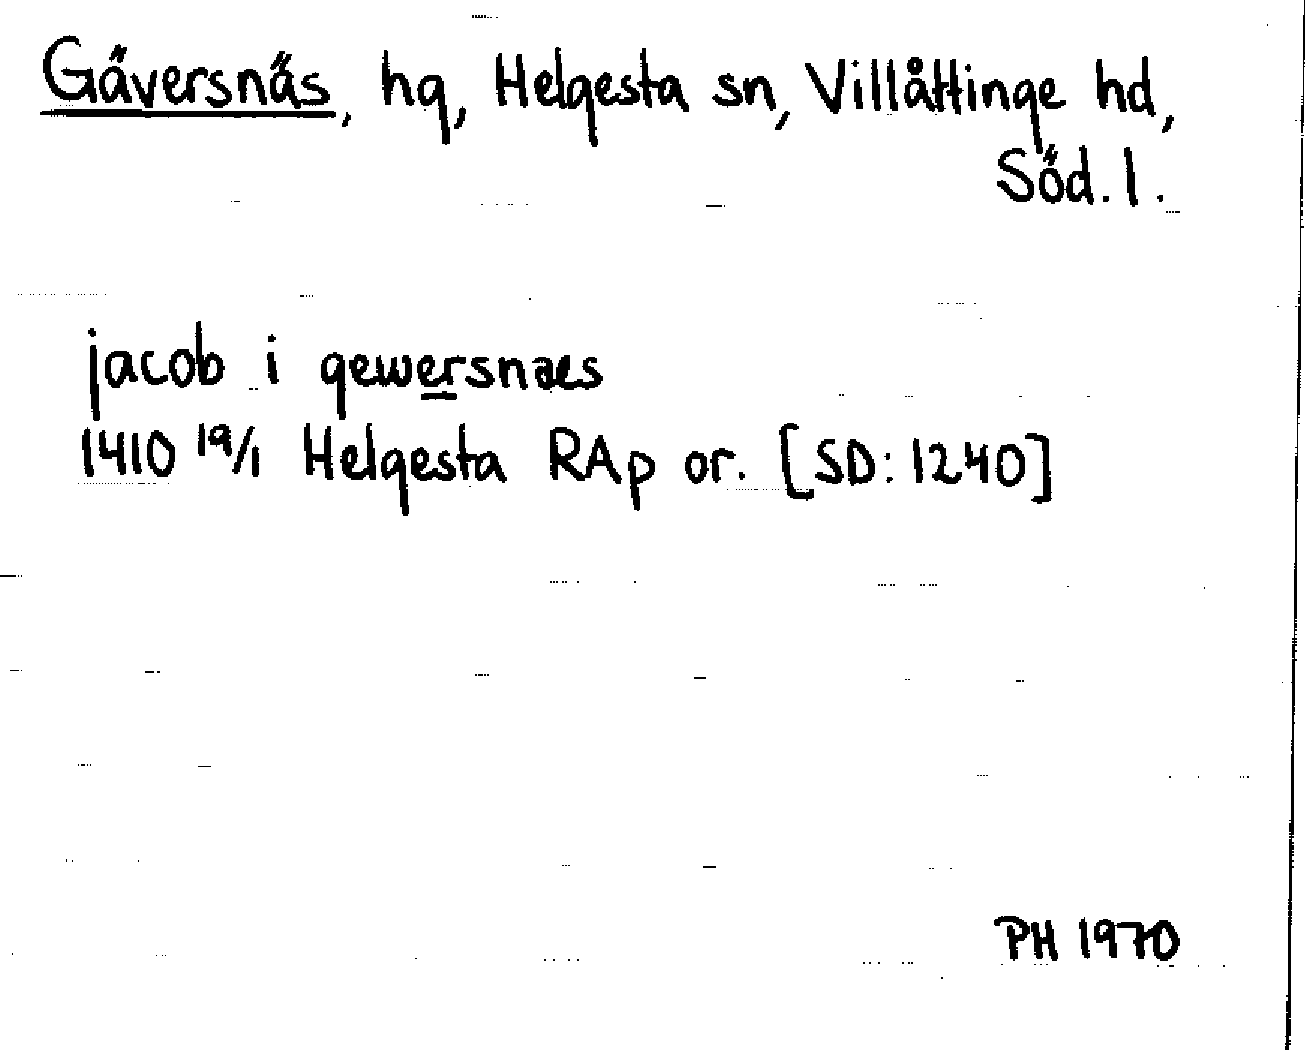 Gäversnäs, hg, Helgesta sn, Villåttinge hd,
Söd. l.
jacob i gewersnaes
1410 19/1 Helgesta RAp or. [SD: 1240]
PH 1970